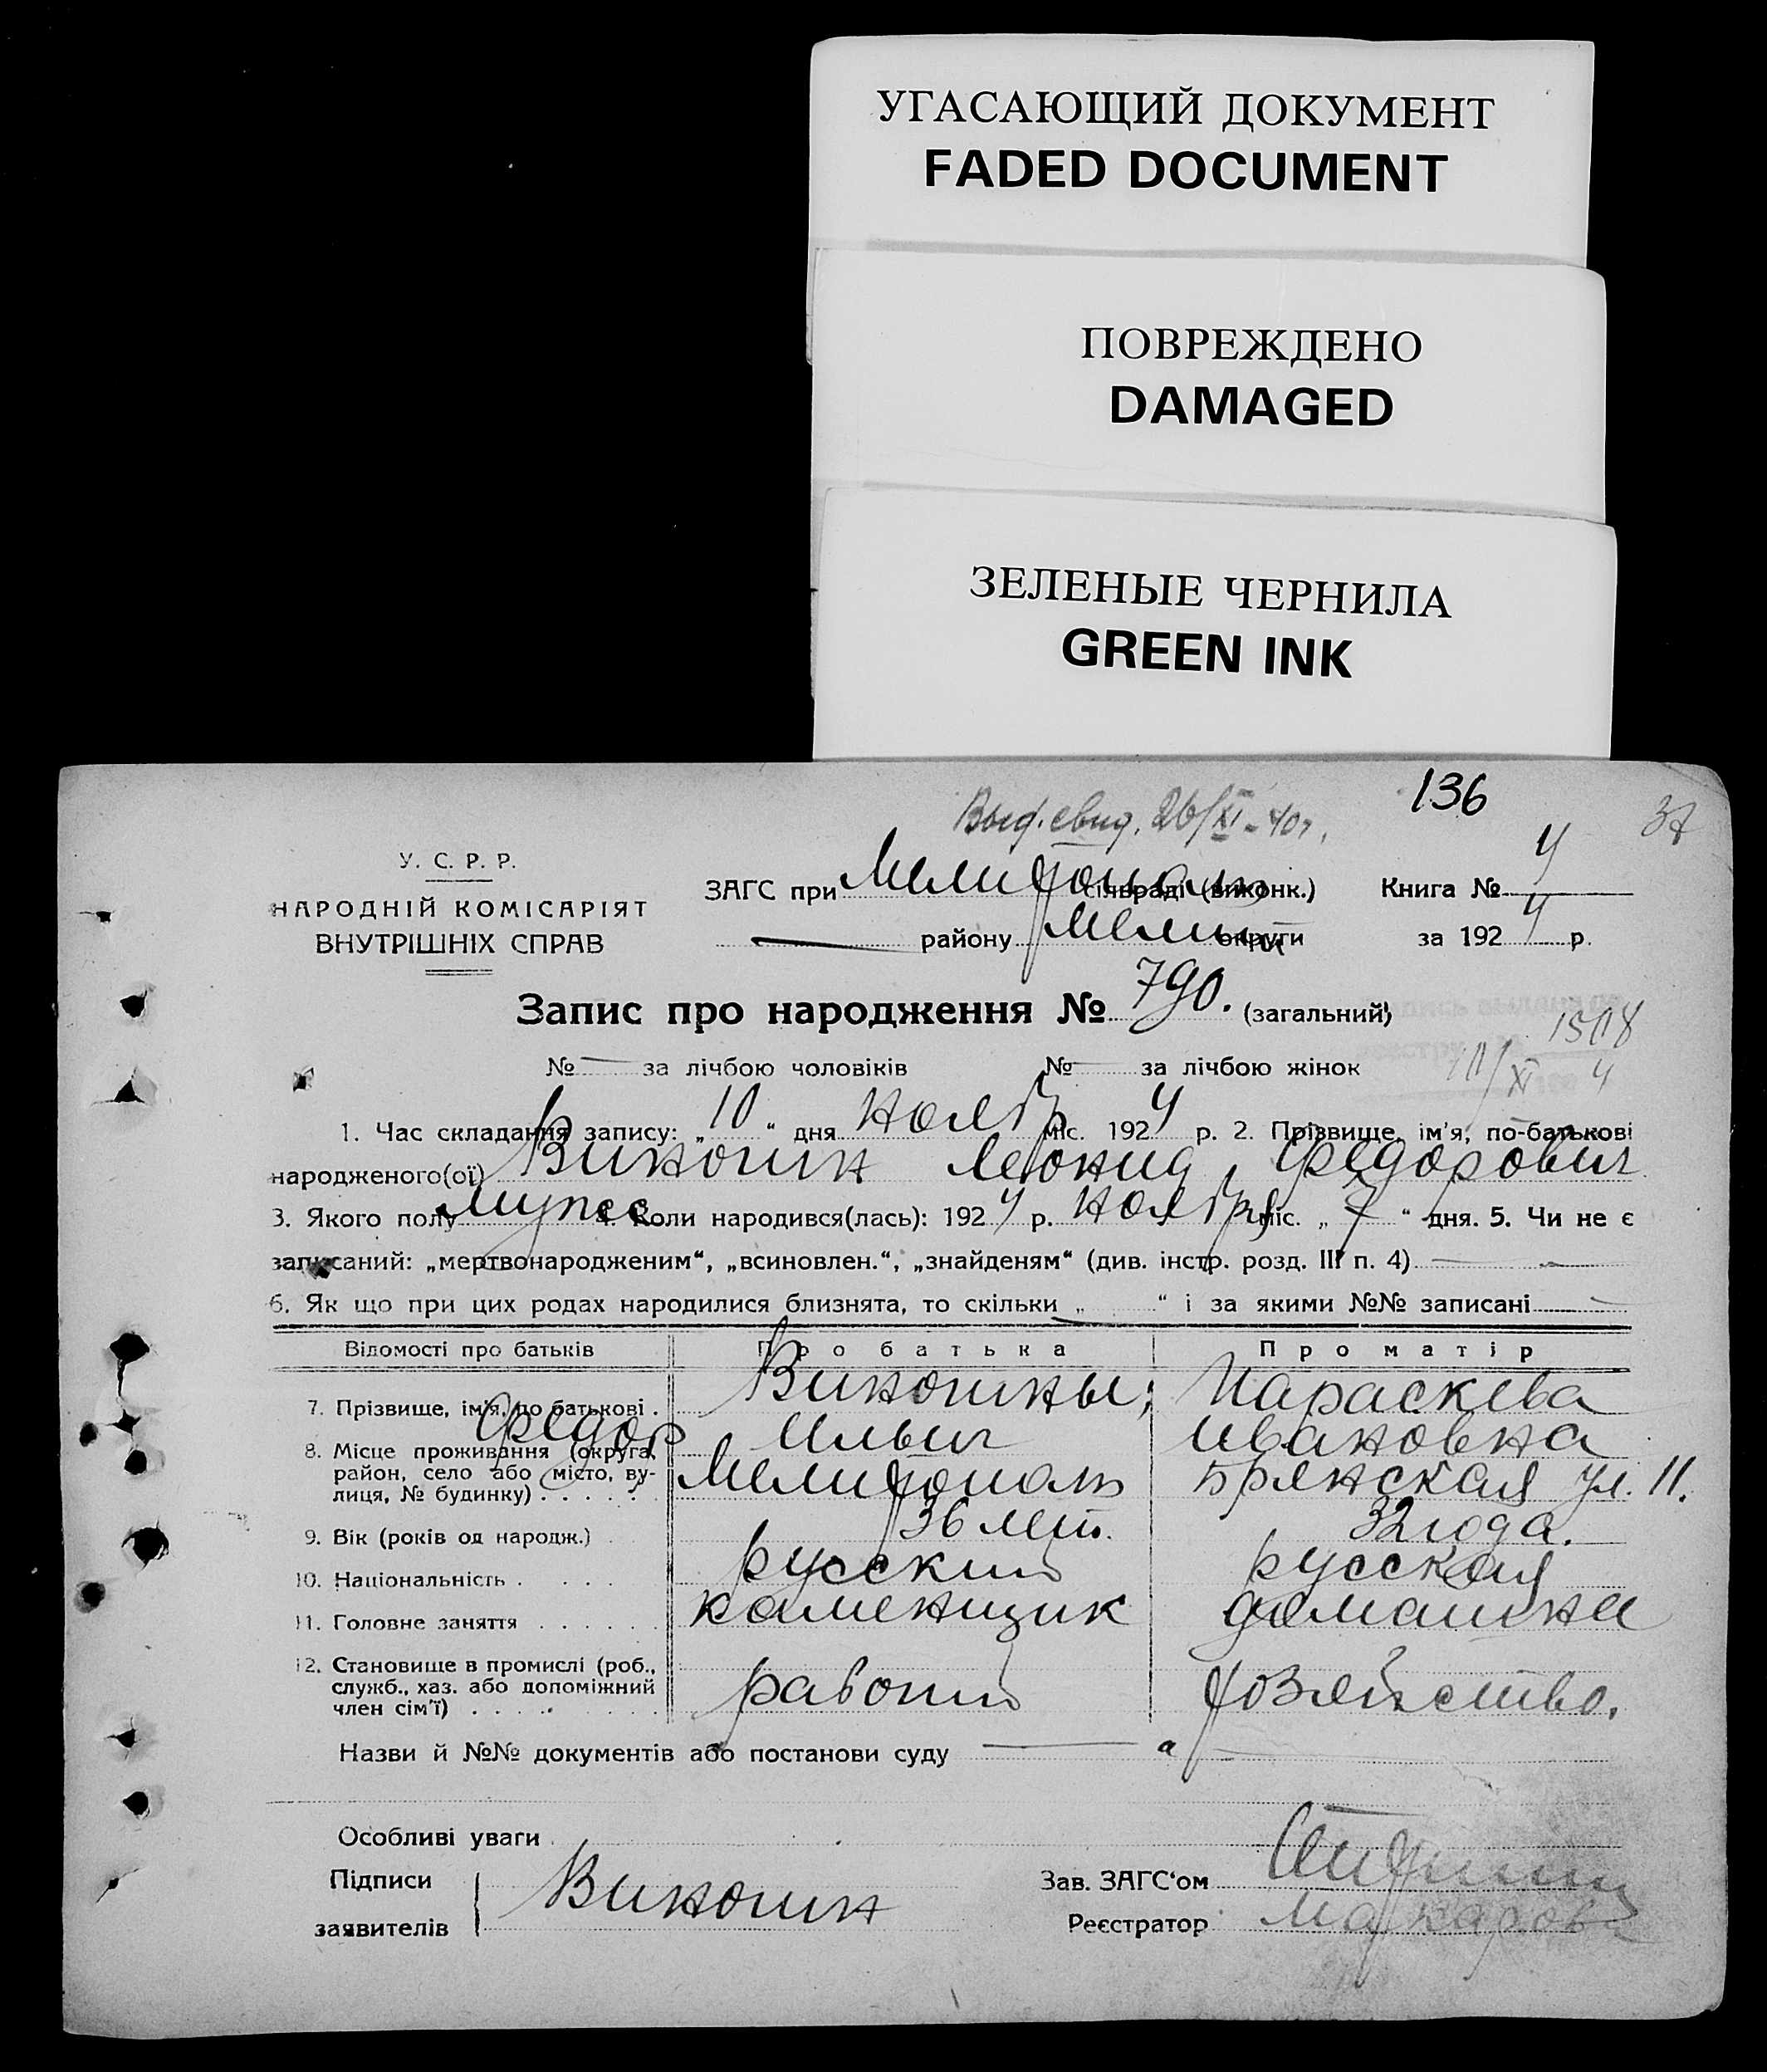 УГАСАЮЩИЙ ДОКУМЕНТ
FADED DOCUMENT
ПОВРЕЖДЕНО
DAMAGED
ЗЕЛЕНЫЕ ЧЕРНИЛА
GREEN INK
136
37
Выд. свид. 26/XI-40г.
У. С. Р. Р.
НАРОДНІЙ КОМІСАРІЯТ
ВНУТРІШНІХ СПРАВ
ЗАГС при Мелитополь сільраді (виконк.) Книга № 4
району Мелит округи за 1924 р.
Запис про народження № 790. (загальний)
1518
№ за лічбою чоловіків № за лічбою жінок
11/XI 4
1. Час складання запису: „10“ дня Ноябр міс. 1924 р. 2. Прізвище, ім'я, по-батькові
народженого(ої) Виношин Леонид Федорович
3. Якого полу мужс 4. Коли народився(лась): 1924 р. Ноября міс. „7“ дня. 5. Чи не є
записаний: „мертвонародженим“, „всиновлен.“, „знайденям“ (див. інстр. розд. III п. 4)
6. Як що при цих родах народилися близнята, то скільки „ “ і за якими №№ записані
Відомості про батьків Про батька Про матір
7. Прізвище, ім'я, по батькові . Виношины; Параскева
Федор Ильич Ивановна
8. Місце проживання (округа,
район, село або місто, ву-
лиця, № будинку) . . . . . . Мелитополь Брянская ул. 11.
9. Вік (років од народж.) . 36 лет. 32 года.
10. Національність . . . . русский русская
11. Головне заняття . . . . . . каменщик домашне
12. Становище в промислі (роб.,
служб., хаз. або допоміжний
член сім'ї) . . . . . . . . рабочий хозяйство.
Назви й №№ документів або постанови суду
Особливі уваги
Підписи
заявителів Виношин
Зав. ЗАГС'ом
Реєстратор Макарова